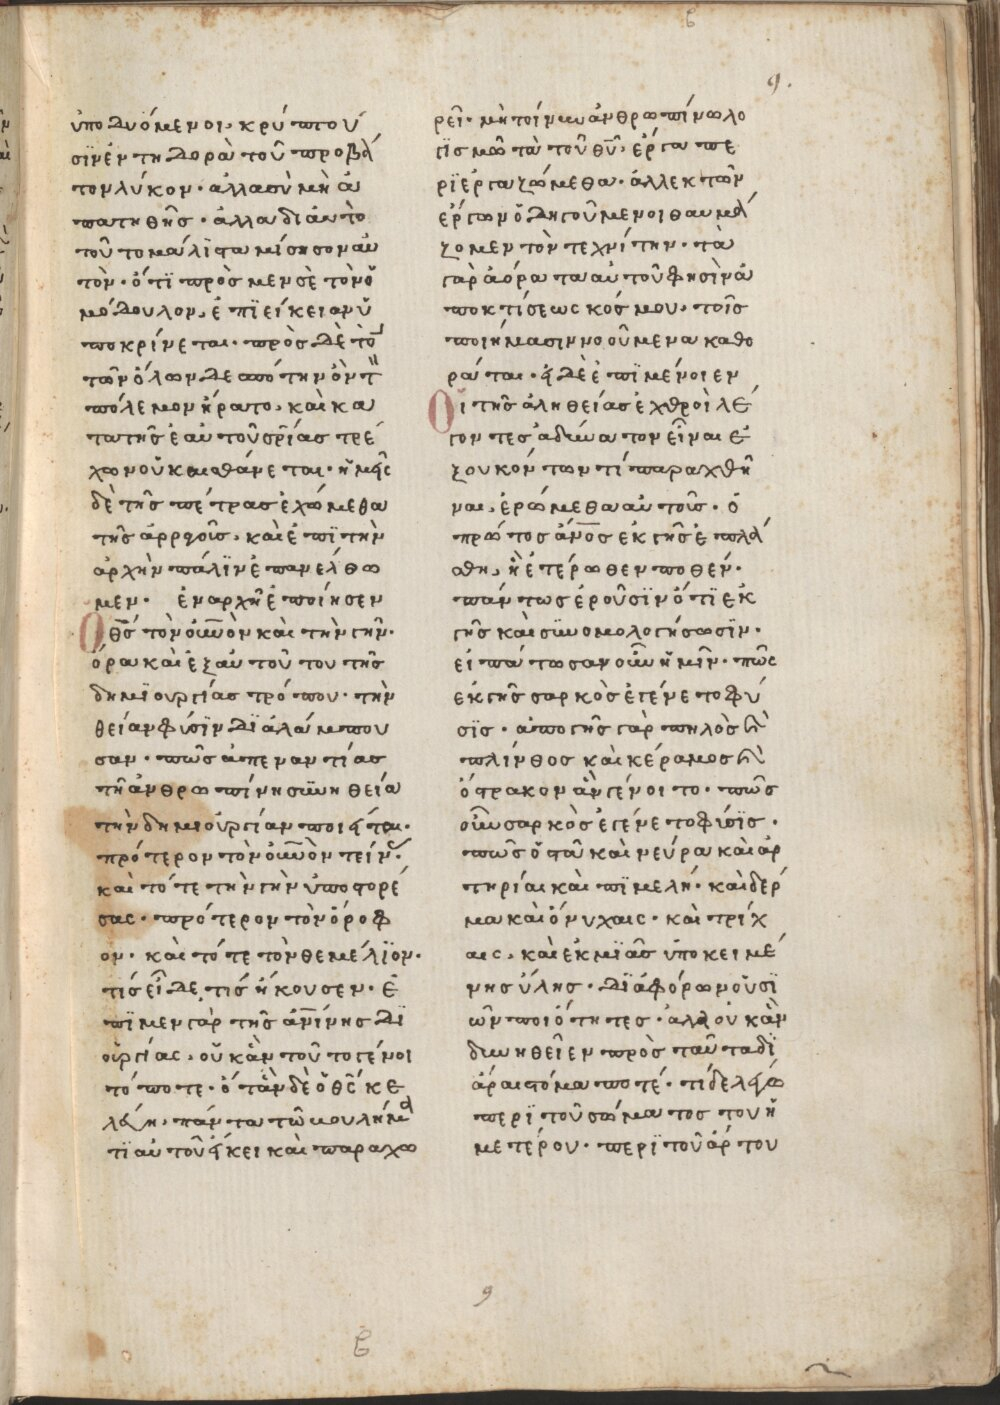 ϐ
9.
ὑποδυόμενοι, κρύπτου
σϊν ἐν τῆ δορᾶ τοῦ προβά
του λύκον· ἀλλὰ σὺ μὴ ἀ
πατηθῆς· ἀλλα διὰυτὸ
τοῦτο μάλϊστα μίσησον αὐ
τὸν· ὅτϊ πρὸς μεν σὲ τὸν ὁ
μόδουλον, ἐπϊείκειαν ὑ
ποκρίνεται· πρὸς δὲ τὸν
τῶν ὅλων δεσπότην ὄντα
πόλεμον ἤρατο, καὶ κα
τα τῆς ἑαυτοῦ σρίας τρέ
χων οὐκ αισθάνεται· ἡμεῖς
δὲ τῆς πέτρας ἐχώμεθα
τῆς ἀρραγοῦς, καὶ ἐπϊ τὴν
ἀρχὴν πάλϊν ἐπανέλθω
μεν· ἐν ἀρχῆ ἐποίησεν
Ὁ θς τὸν οὐνὸν καὶ τὴν γῆν·
ὅρα καὶ ἐξ αὐτοῦ του τῆς
δημϊουργίας τρόπου· τὴν
θείαν φύσϊν δϊαλάμπου
σαν· πῶς ἀπεναντίας
τῆ ἀνθρωπίνη συνηθεία
τὴν δημιουργίαν ποιεῖται·
πρότερον τὸν οὐνὸν τείνας
καὶ τότε τὴν γῆν ὑποστορέ
σας· πρότερον τὸν ὄροφ
ον· καὶ τότε τὸν θεμέλϊον·
τίς εἶδε, τίς ἤκουσεν· ἐ
πϊ μεν γὰρ τῆς ἀνίνης δϊ
ουργίας, οὐκ ἂν τοῦτο γένοι
τό ποτε· ὅταν δὲ ὁ θς κε
λεύη, πάντα τῶ βουλήμα
τϊ αὐτοῦ εἴκει καὶ παραχω
ρεῖ· μὴ τοίνυν ἀνθρωπίνω λο
γϊσμῶ τὰ τοῦ θυ, ἐργα πε
ρϊεργαζώμεθα· ἀλλ εκ τῶν
ἐργων ὁδηγοῦμενοι θαυμά
ζομεν τὸν τεχνίτην· τὰ
γὰρ ἀόρατα αὐτοῦ φησὶν ἀ
πο κτίσεως κόσμου, τοῖς
ποιήμασιν νοοῦμενα καθο
ράται· εἰ δὲ ἐπϊμένοιεν
Οἱ τῆς ἀληθείας ἐχθροὶ λέ
γοντες ἀδύνατον εἶναι ἐ
ξ ουκ όντων τί παραχθῆ
ναι, ἐρώμεθα αὐτοῖς· ὁ
πρῶτος ἄνος ἐκ γῆς ἐπλά
σθη, ἢ ἑτέρωθεν ποθέν·
πάντως ἐροῦσϊν ὅτϊ ἐκ
γῆς καὶ συνομολογήσωσϊν·
εἰπάτωσαν οὖν ἡμῖν· πῶς
ἐκ γῆς σαρκὸς ἐγένετο φύ
σϊς· ἀπο γῆς γὰρ πηλὸς καὶ
πλίνθος καὶ κέραμος καὶ
ὄστρακον ἂν γένοιτο· πῶς
οὖν σαρκὸς ἐγένετο φύσϊς·
πῶς ὀστᾶ καὶ νεύρα καὶ ἀρ
τηρίαι καὶ πϊμελή· καὶ δέρ
μα καὶ ὄνυχαις· καὶ τρίχ
αις, καὶ ἐκ μϊᾶς ὑποκειμέ
νης ὕλης· δϊαφόρων οὐσϊ
ῶν ποιότητες· ἀλλ οὐκ ἂν
δυνηθεῖεν πρὸς ταῦτα δϊ
άραι στόμα ποτέ· τί δε λέγω
περϊ τοῦ σώματος του ἡ
μετέρου· περϊ τοῦ ἄρτου
9
ϐ